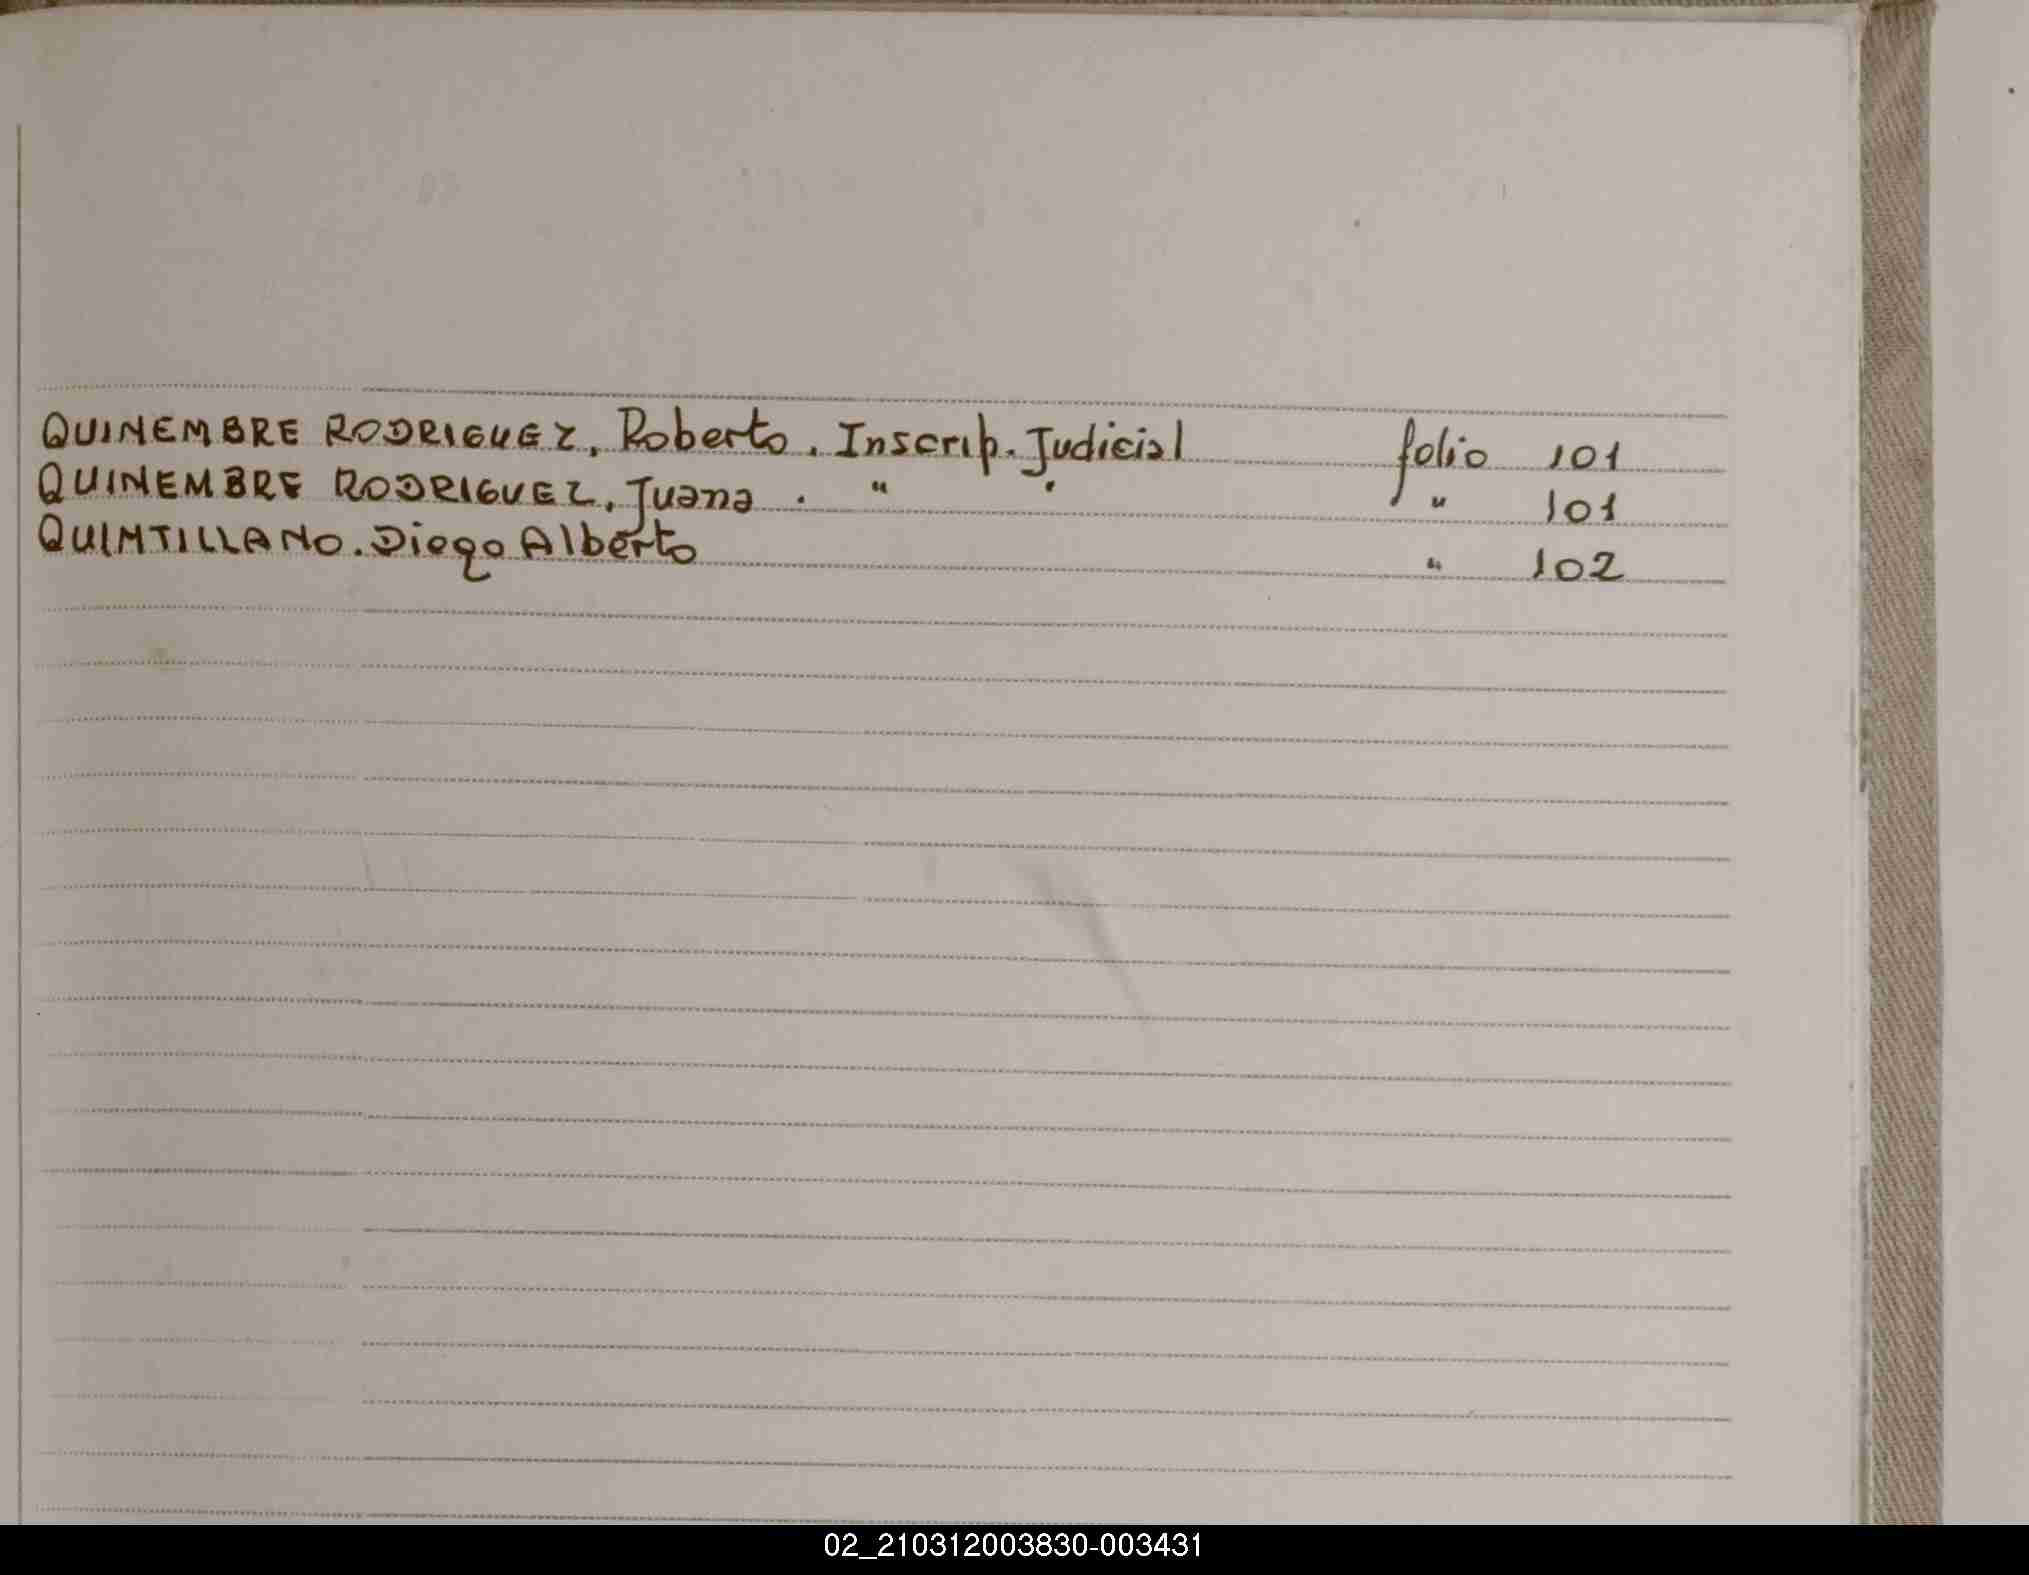 QUINEMBRE RODRIGUEZ, Roberto. Inscrip. Judicial folio 101
QUINEMBRE RODRIGUEZ, Juana. " " " 101
QUINTILLANO. Diego Alberto " 102
02_210312003830-003431